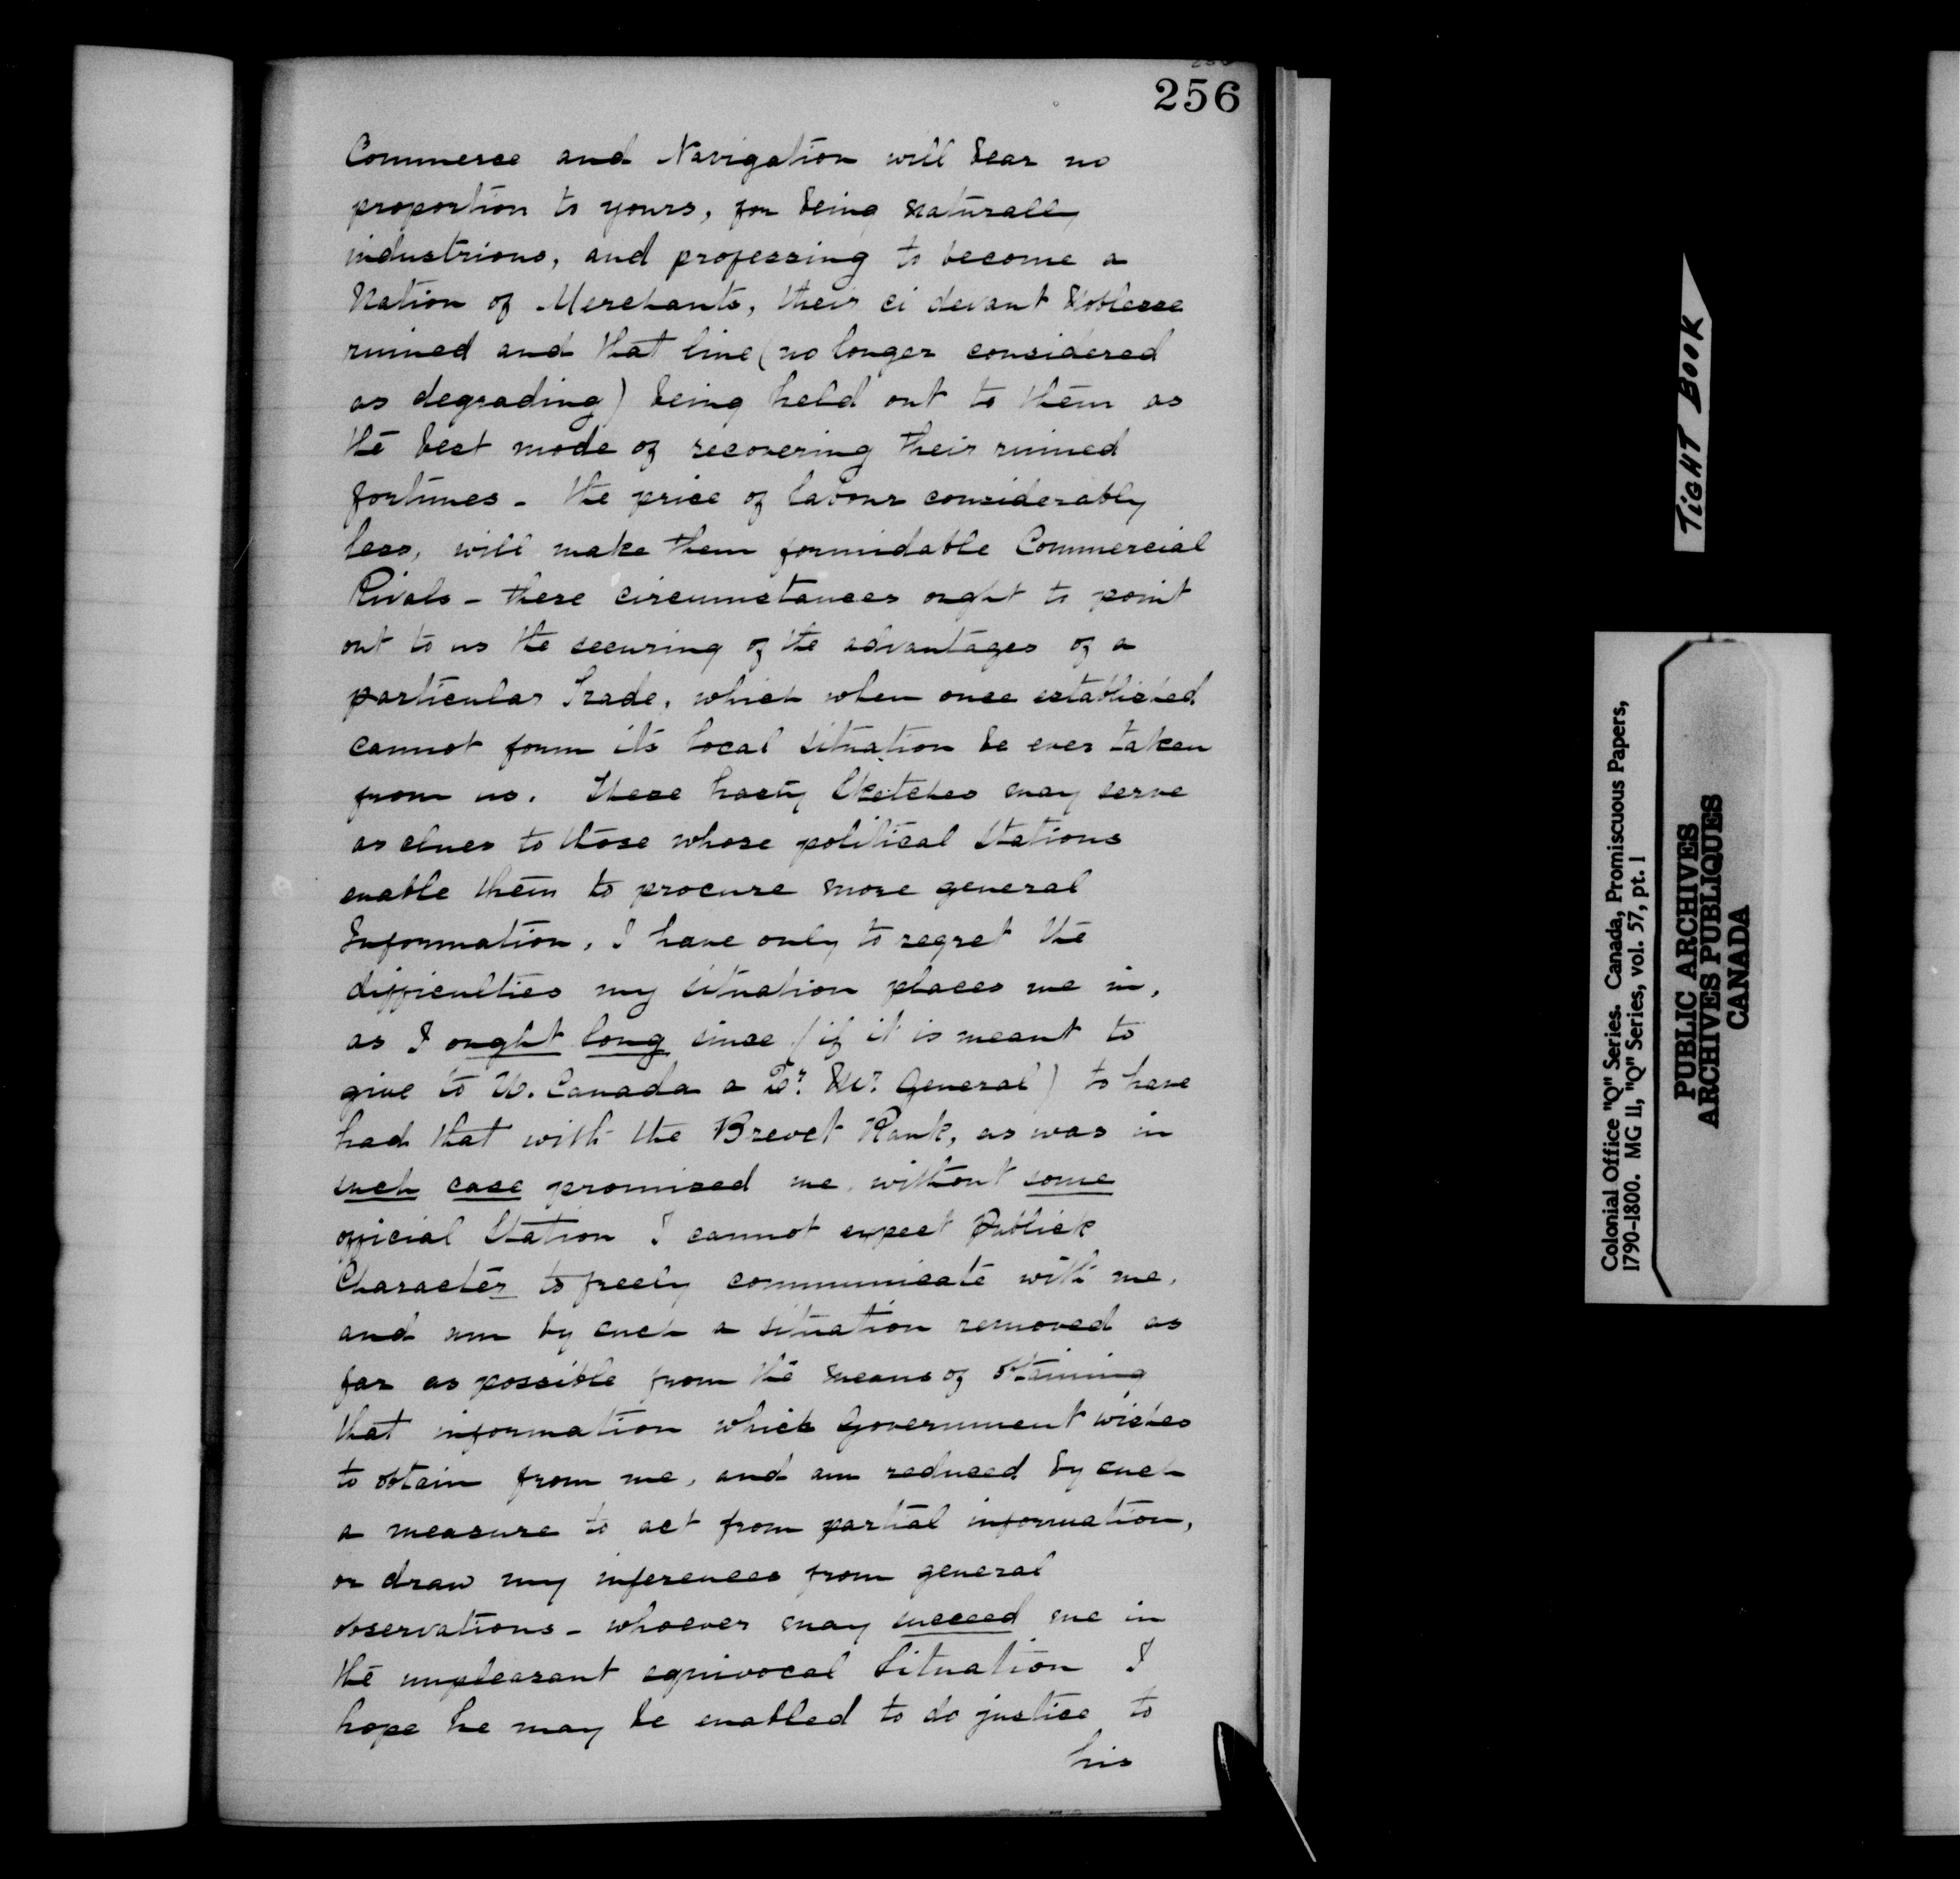 256
Commerce and Navigation will bear no
proportion to yours, for being naturally
industrious, and professing to become a
Nation of Merchants, their ci devant Noblesse
ruined and that line (no longer considered
as degrading) being held out to them as
the best mode of recovering their ruined
fortunes - the price of labour considerably
less, will make them formidable Commercial
Rivals - these circumstances ought to point
out to us the securing of the advantages of a
particular Trade, which when once established
cannot form its local situation be ever taken
from us. These hasty Sketches may serve
as clues to those whose political Stations
enable them to procure more general
Information, I have only to regret the
difficulties my situation places me in,
as I ought long since (if it is meant to
give to U. Canada a Qr. Mr. General) to have
had that with the Brevet Rank, as was in
such case promised me, without some
official Station I cannot expect Publick
Character to freely communicate with me,
and am by such a situation removed as
far as possible from the means of obtaining
that information which Government wishes
to obtain from me, and am reduced by such
a measure to act from partial information,
or draw my inferences from general
observations - whoever may succeed me in
the unpleasant equivocal Situation I
hope he may be enabled to do justice to
his
TIGHT BOOK
Colonial Office "Q" Series. Canada, Promiscuous Papers,
1790-1800. MG 11, "Q" Series, vol. 57, pt. 1
PUBLIC ARCHIVES
ARCHIVES PUBLIQUES
CANADA